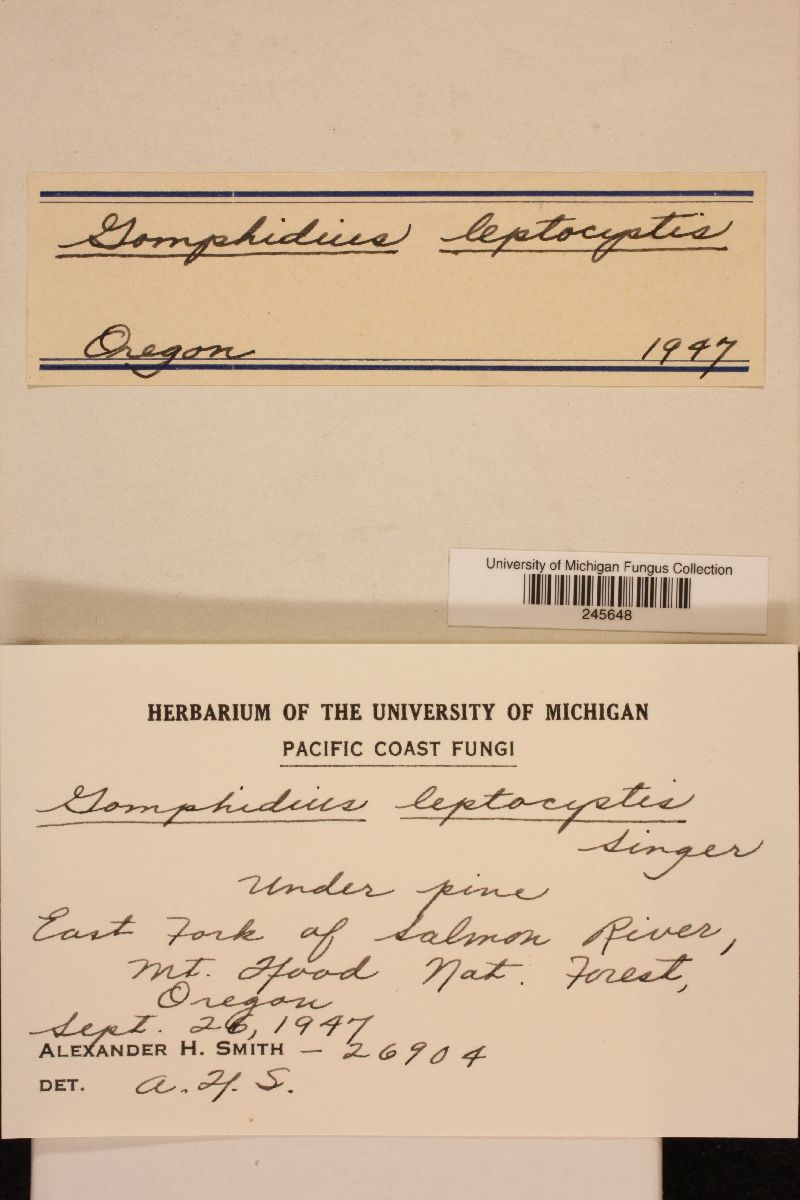 Gomphidius leptocystis
Oregon 1947
University of Michigan Fungus Collection
245648
HERBARIUM OF THE UNIVERSITY OF MICHIGAN
PACIFIC COAST FUNGI
Gomphidius leptocystis
Singer
Under pine
East Fork of Salmon River,
Mt. Hood Nat. Forest,
Oregon
Sept. 26, 1947
ALEXANDER H. SMITH — 26904
DET. A. H. S.